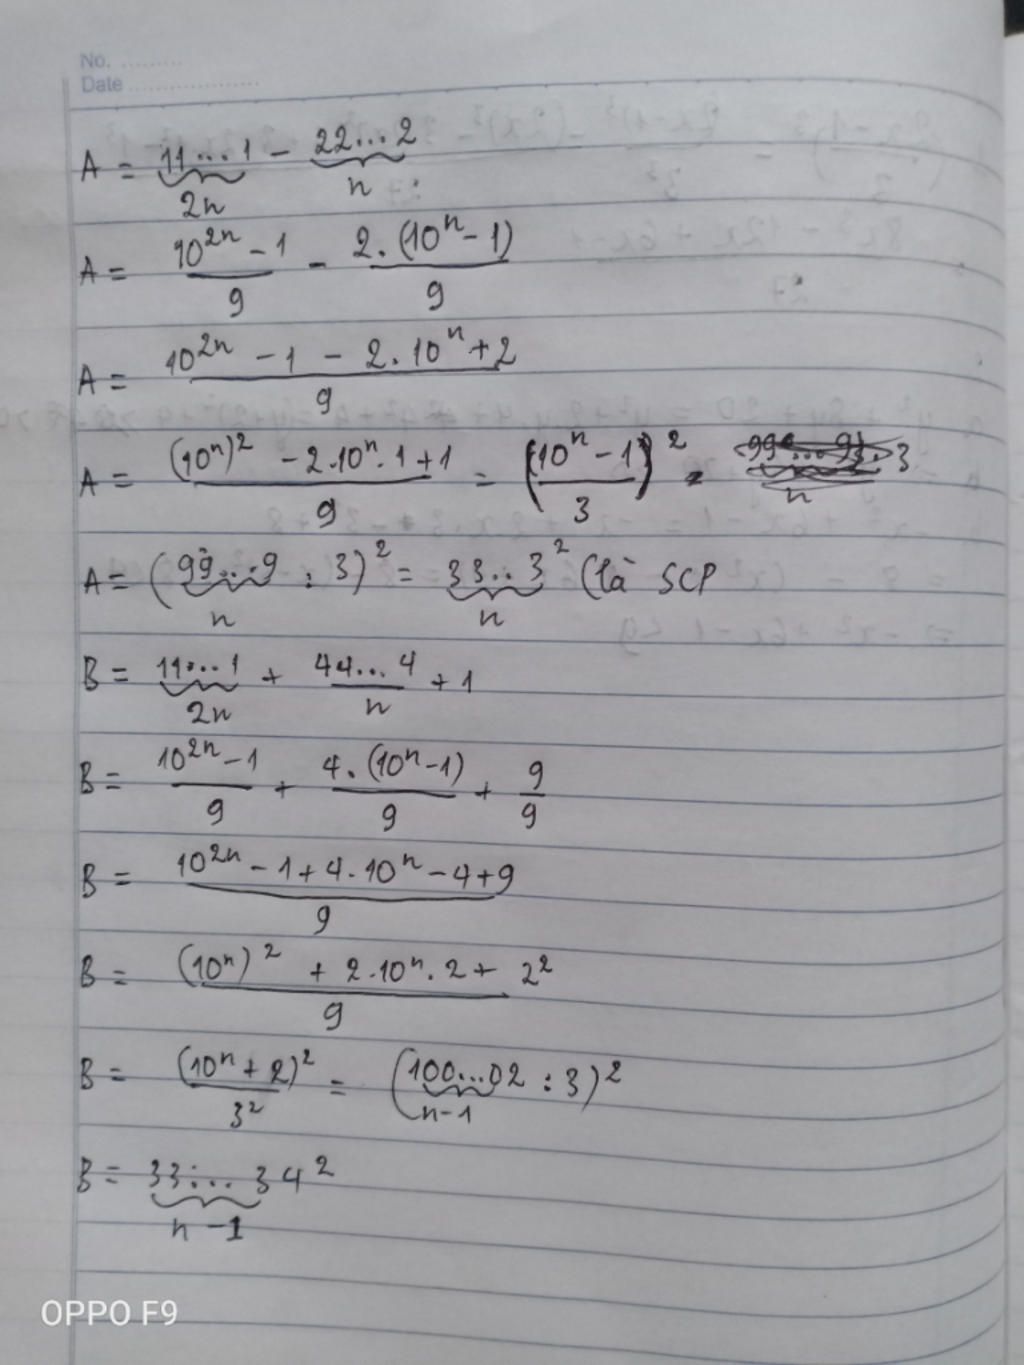 No. .........
Date ...................
A = 11...1 - 22...2
2n n
A = 10²ⁿ - 1 / 9 - 2.(10ⁿ - 1) / 9
A = 10²ⁿ - 1 - 2.10ⁿ + 2 / 9
A = (10ⁿ)² - 2.10ⁿ.1 + 1 / 9 = (10ⁿ - 1 / 3)² = 3
n
A = (99...9 : 3)² = 33...3² (là SCP
n n
B = 11...1 + 44...4 + 1
2n n
B = 10²ⁿ - 1 / 9 + 4.(10ⁿ - 1) / 9 + 9 / 9
B = 10²ⁿ - 1 + 4.10ⁿ - 4 + 9 / 9
B = (10ⁿ)² + 2.10ⁿ.2 + 2² / 9
B = (10ⁿ + 2)² / 3² = (100...02 : 3)²
n-1
B = 33...34²
n-1
OPPO F9